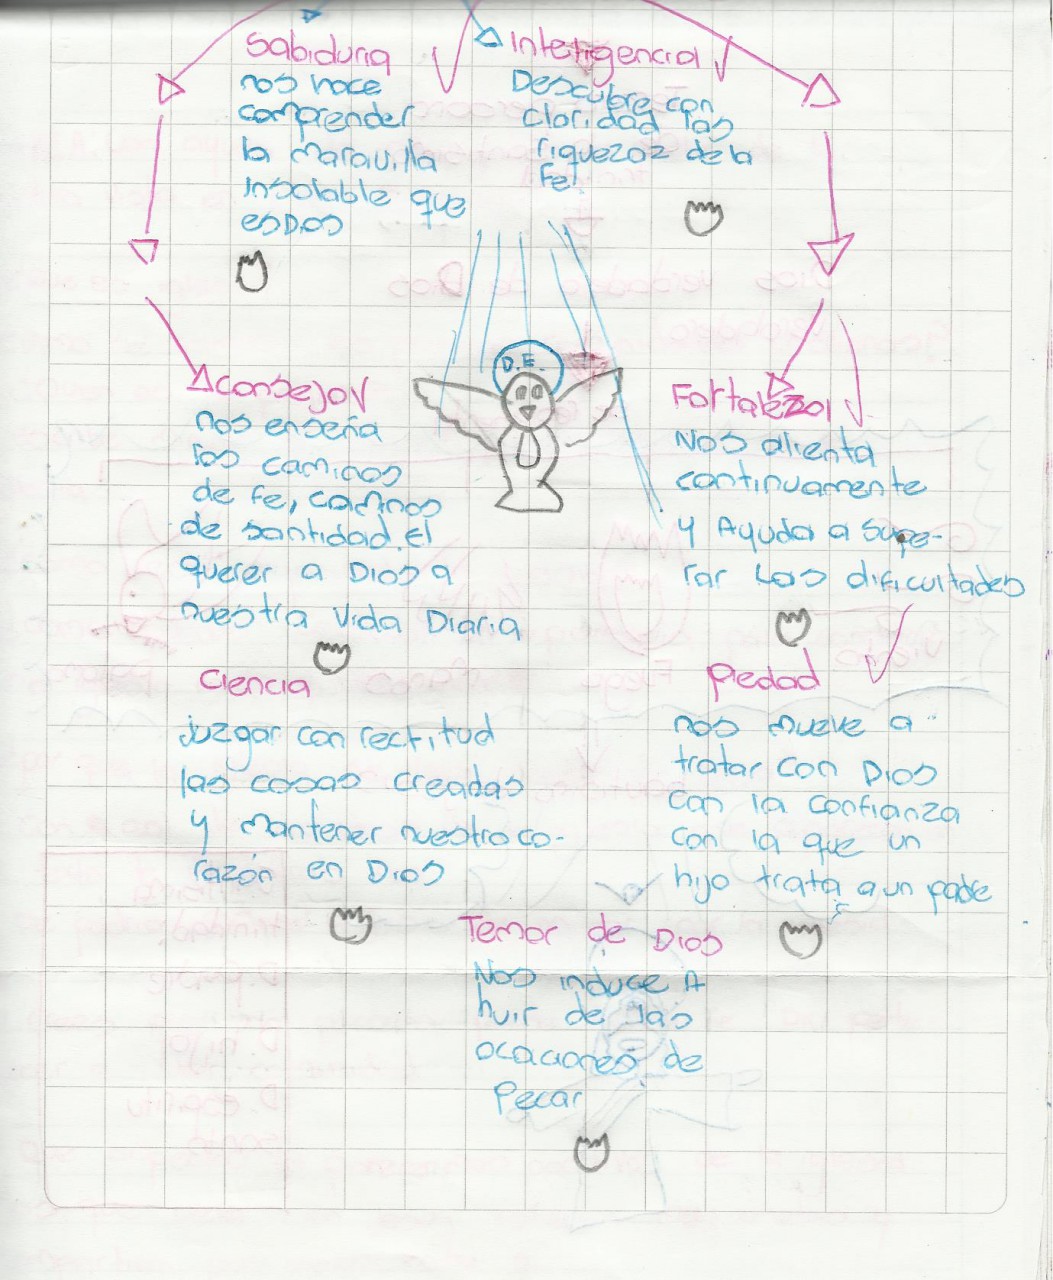 Sabiduria
nos hace
comprender
la maravilla
Insolable que
es Dios
Inteligencia
Descubre con
claridad las
riquezaz de la
Fe!
D.E.
Consejo
nos enseña
los caminos
de fe, caminos
de santidad. El
querer a Dios a
nuestra Vida Diaria
Fortaleza
Nos alienta
continuamente
y Ayuda a Supe-
rar Las dificultades
Ciencia
juzgar con rectitud
las cosas creadas
y mantener nuestro co-
razón en Dios
Piedad
nos mueve a
tratar con Dios
con la confianza
con la que un
hijo trata a un padre
Temor de Dios
Nos induce A
huir de las
ocaciones de
Pecar